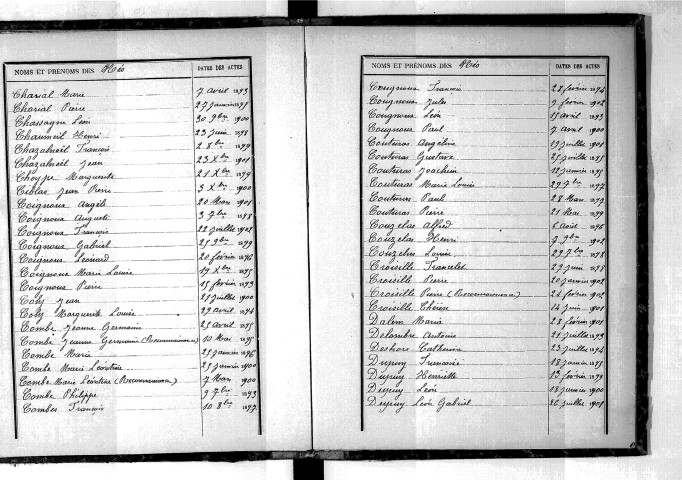 NOMS ET PRÉNOMS DES Nés DATES DES ACTES
Charial Marie 7 avril 1893
Charial Pierre 27 janvier 1897
Chassagne Léon 30 9bre 1900
Chaumeil Henri 23 juin 1898
Chazalnoël François 2 8bre 1899
Chazalnoël Jean 23 Xbre 1901
Choppe Marguerite 21 Xbre 1899
Ciblac Jean Pierre 3 Xbre 1900
Coignoux Angèle 20 Mars 1901
Coignoux Auguste 3 7bre 1898
Coignoux François 22 juillet 1902
Coignoux Gabriel 25 9bre 1899
Coignoux Léonard 20 février 1896
Coignoux Marie Louise 19 Xbre 1895
Coignoux Pierre 15 février 1893
Coly Jean 21 juillet 1900
Coly Marguerite Louise 29 avril 1894
Combe Jeanne Germaine 25 avril 1895
Combe Jeanne Germaine (Reconnaissance) 10 Mai 1895
Combe Marie 25 janvier 1896
Combe Marie Léontine 21 janvier 1900
Combe Marie Léontine (Reconnaissance) 7 Mars 1900
Combe Philippe 9 7bre 1893
Combes François 10 8bre 1897
NOMS ET PRÉNOMS DES Nés DATES DES ACTES
Cougnoux François 28 février 1894
Cougnoux Jules 9 février 1902
Cougnoux Léon 15 avril 1893
Cougnoux Paul 7 avril 1900
Couturas Angéline 19 juillet 1901
Couturas Gustave 25 juillet 1895
Couturas Joachim 18 janvier 1895
Couturas Marie Louise 29 7bre 1897
Couturas Paul 28 Mars 1899
Couturas Pierre 21 Mai 1899
Couzelas Alfred 6 Août 1896
Couzelas Henri 9 9bre 1902
Couzelas Laurier 29 7bre 1898
Croisille Francelet 29 juin 1898
Croisille Pierre 20 janvier 1902
Croisille Pierre (Reconnaissance) 24 février 1902
Croisille Thérèse 14 juin 1900
Dalem Maria 28 février 1901
Delambre Antoine 21 juillet 1899
Destrore Catherine 23 juillet 1894
Dupuy François 28 janvier 1895
Dupuy Henriette 13 février 1899
Dupuy Léon 18 janvier 1900
Dupuy Léon Gabriel 26 juillet 1901